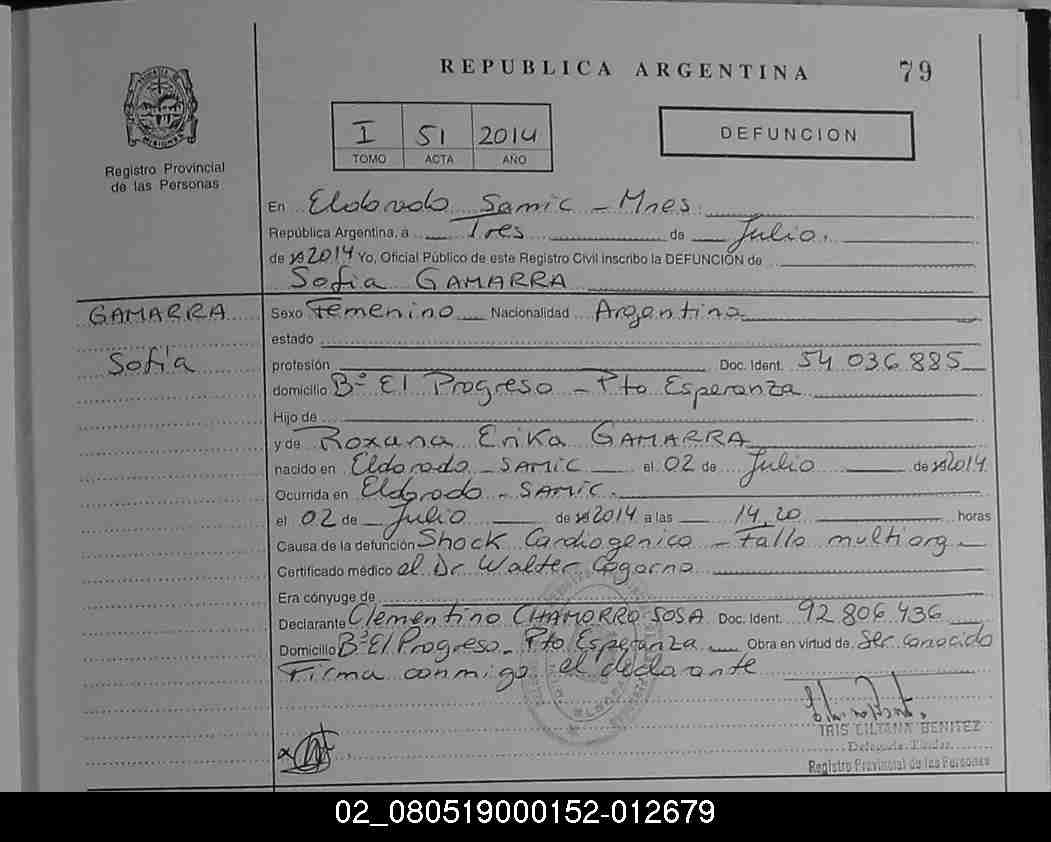 REPUBLICA ARGENTINA 79
I 51 2014
TOMO ACTA AÑO
DEFUNCION
MISIONES
Registro Provincial
de las Personas
En Eldorado Samic - Mnes
República Argentina, a Tres de Julio.
de 2014 Yo, Oficial Público de este Registro Civil inscribo la DEFUNCIÓN de
Sofia GAMARRA
GAMARRA
Sofía
Sexo Femenino Nacionalidad Argentina
estado
profesión Doc. Ident. 54 036 885
domicilio Bº El Progreso - Pto Esperanza
Hijo de
y de Roxana Erika GAMARRA
nacido en Eldorado - SAMIC el 02 de Julio de 2014
Ocurrida en Eldorado - SAMIC.
el 02 de Julio de 2014 a las 14,20 horas
Causa de la defunción Shock Cardiogenico - Fallo multiorg
Certificado médico el Dr Walter Cogorno
Era cónyuge de
Declarante Clementino CHAMORRO SOSA Doc. Ident. 92 806 436
Domicilio Bº El Progreso - Pto Esperanza Obra en virtud de Ser conocido
Firma conmigo el declarante
IRIS LILIANA BENITEZ
Delegada Titular
Registro Provincial de las Personas
02_080519000152-012679